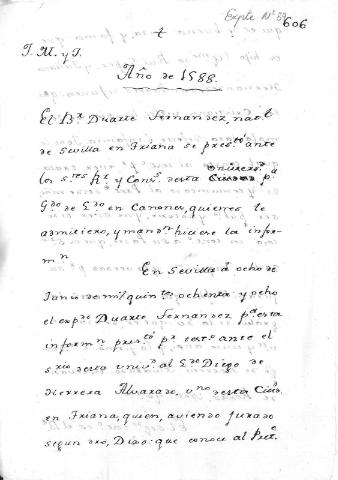 Expte Nº 89
606
J. M. y J.
Año de 1588.
El Br Duarte Fernandez, natl
de Sevilla en Triana se presto ante
los sres Rr y Consa desta Univerd pa
Gdo de Ldo en Canones, quienes le
admitiero, y mandn hiciere la infor-
mn
En Sevilla á ocho de
Junio de mil quintos ochenta y ocho
el expdo Duarte Fernandez pa esta
informn presto pr testo ante el
srio desta univd al Ldo Diego de
Herrera Alvarado, vno desta Ciud
en Triana, quien, aviendo jurado
segun dro, Dixo: que conoce al Prete